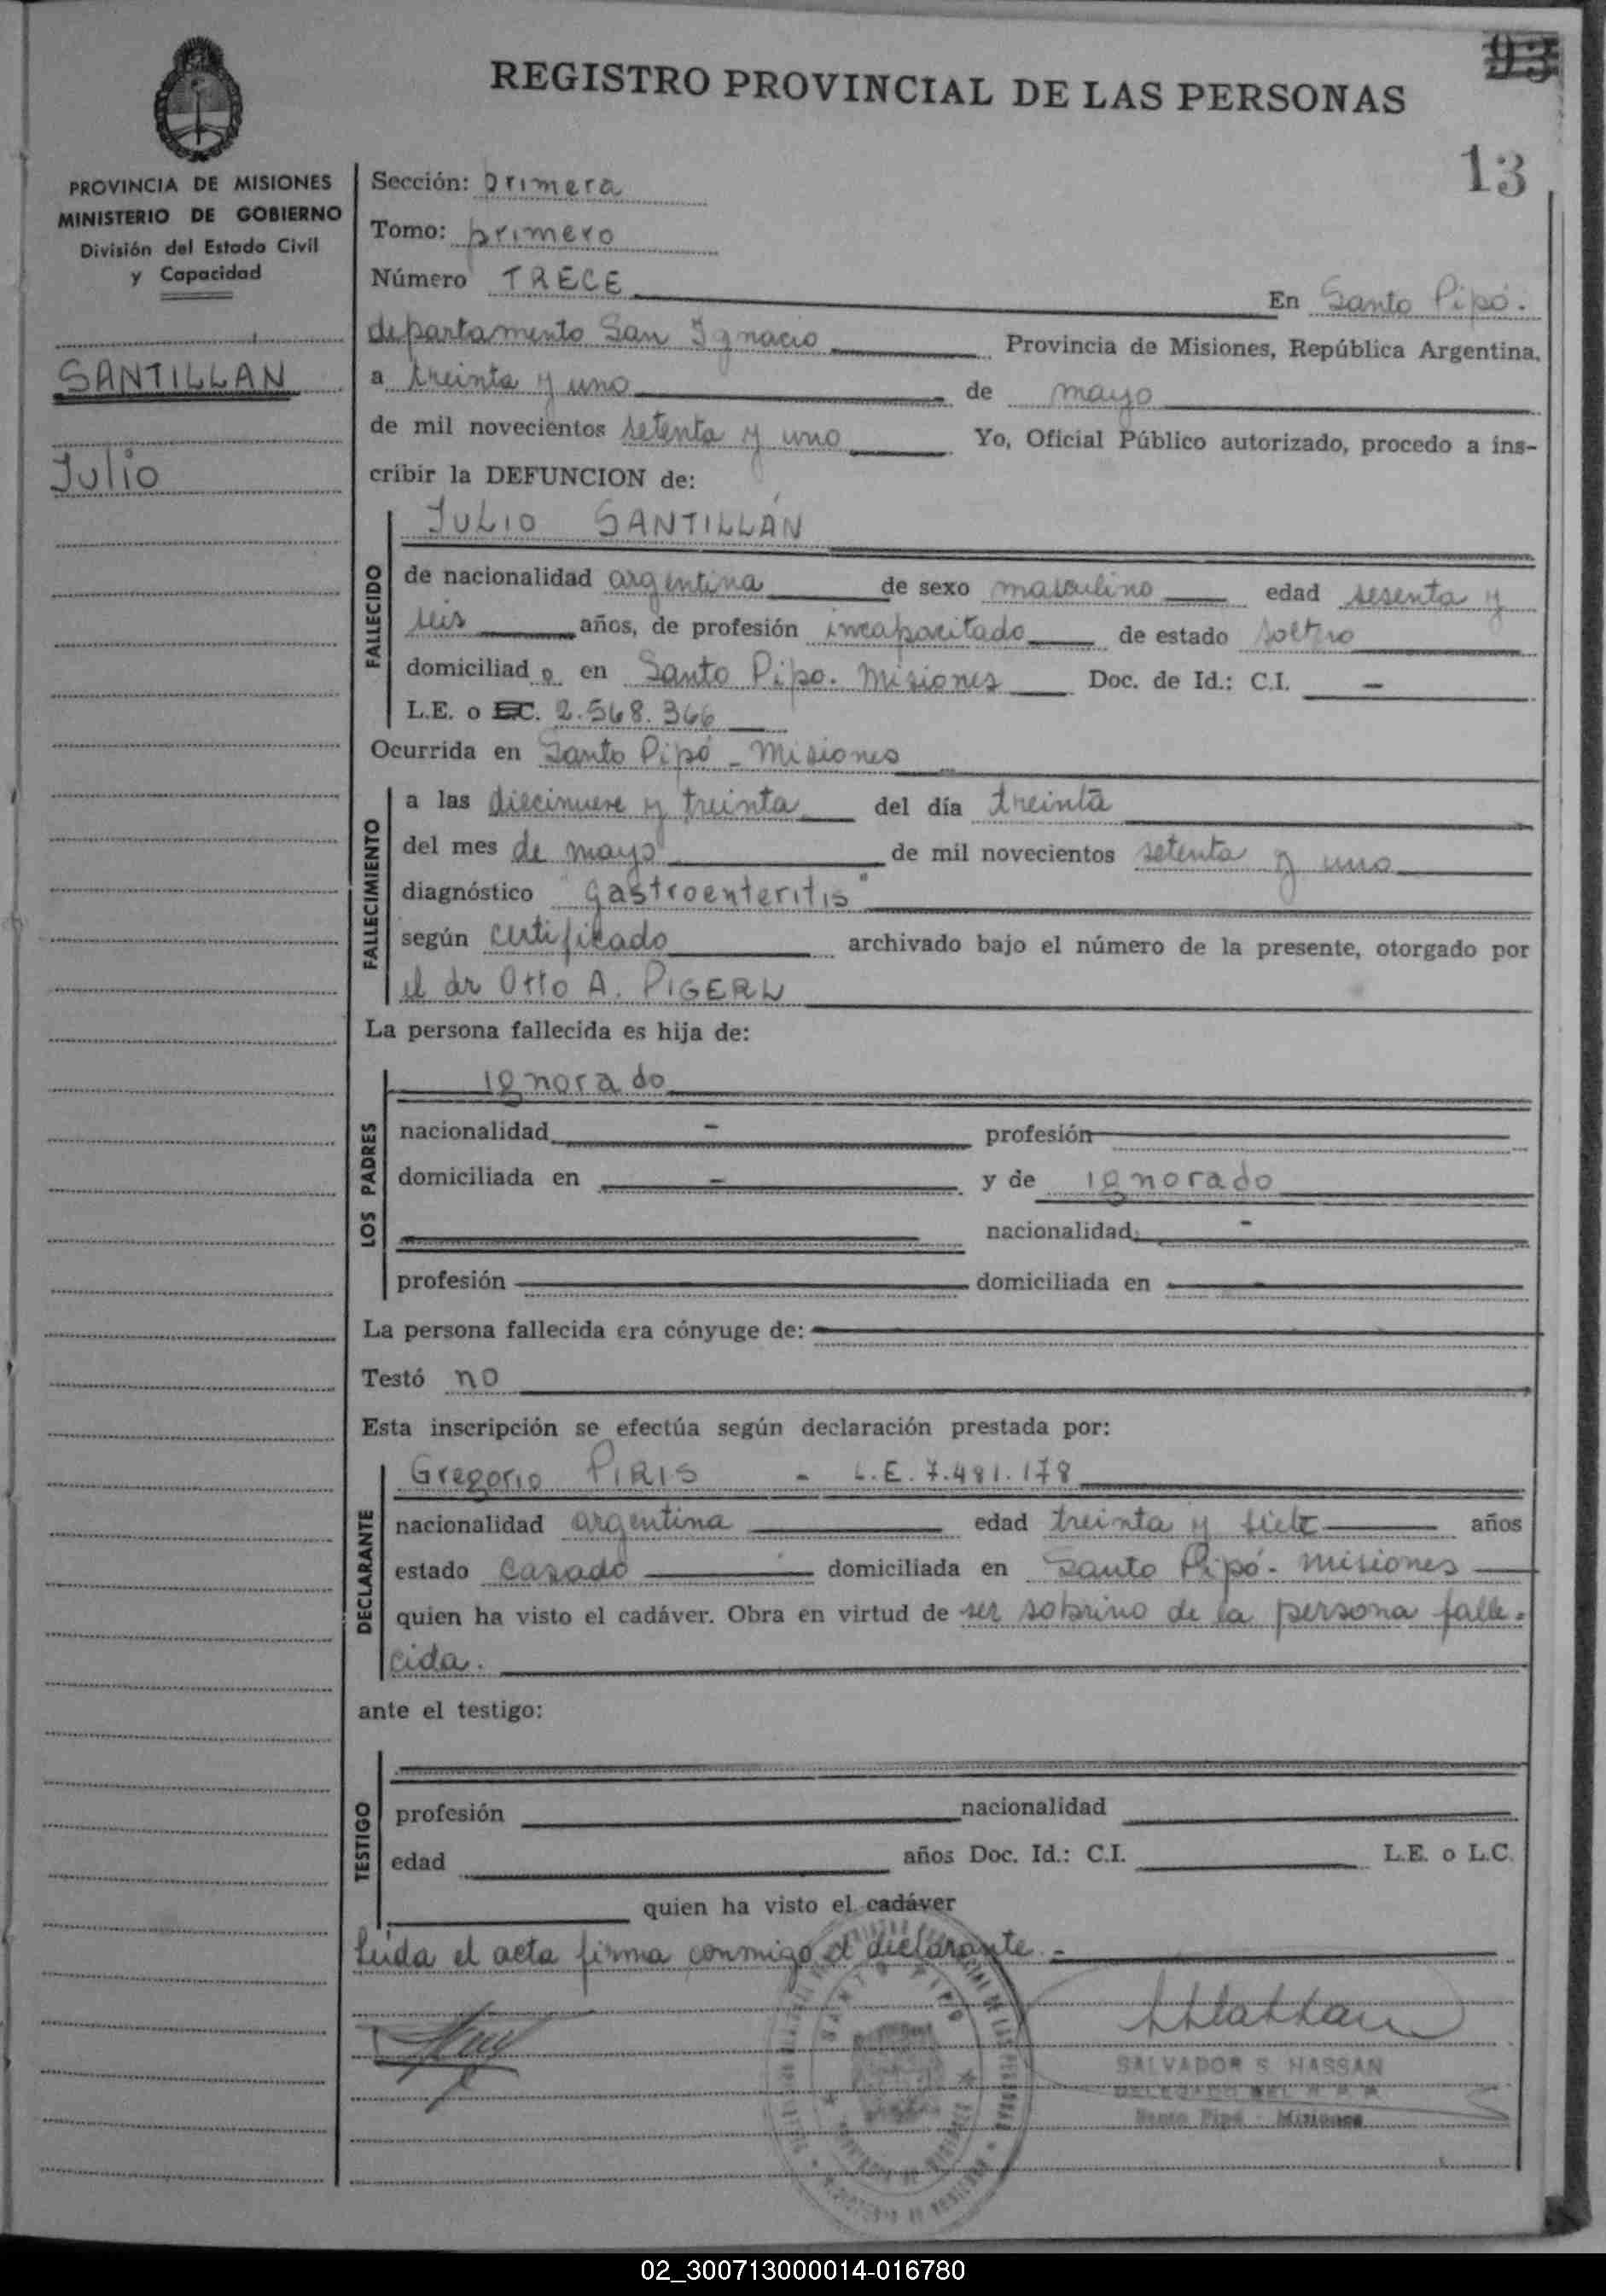 REGISTRO PROVINCIAL DE LAS PERSONAS
93
13
PROVINCIA DE MISIONES
MINISTERIO DE GOBIERNO
División del Estado Civil
y Capacidad
SANTILLAN
Julio
Sección: primera
Tomo: primero
Número TRECE En Santo Pipó.
departamento San Ignacio Provincia de Misiones, República Argentina,
a treinta y uno de mayo
de mil novecientos setenta y uno Yo, Oficial Público autorizado, procedo a ins-
cribir la DEFUNCION de:
FALLECIDO
JULIO SANTILLÁN
de nacionalidad argentina de sexo masculino edad sesenta y
seis años, de profesión incapacitado de estado soltero
domiciliado en Santo Pipo. Misiones Doc. de Id.: C.I. -
L.E. o L.C. 2.568.366
Ocurrida en Santo Pipó - Misiones
FALLECIMIENTO
a las diecinueve y treinta del día treinta
del mes de mayo de mil novecientos setenta y uno
diagnóstico "gastroenteritis"
según certificado archivado bajo el número de la presente, otorgado por
el dr Otto A. PIGERL
La persona fallecida es hija de:
LOS PADRES
ignorado
nacionalidad - profesión
domiciliada en - y de ignorado
nacionalidad -
profesión domiciliada en
La persona fallecida era cónyuge de:
Testó no
Esta inscripción se efectúa según declaración prestada por:
DECLARANTE
Gregorio PIRIS - L.E. 7.481.178
nacionalidad argentina edad treinta y siete años
estado casado domiciliada en Santo Pipó - Misiones
quien ha visto el cadáver. Obra en virtud de ser sobrino de la persona falle-
cida.
ante el testigo:
TESTIGO
profesión nacionalidad
edad años Doc. Id.: C.I. L.E. o L.C.
quien ha visto el cadáver
Leida el acta firma conmigo el declarante. -
SALVADOR S. HASSAN
DELEGADO DEL R. P. P.
Santo Pipó - Misiones
02_300713000014-016780